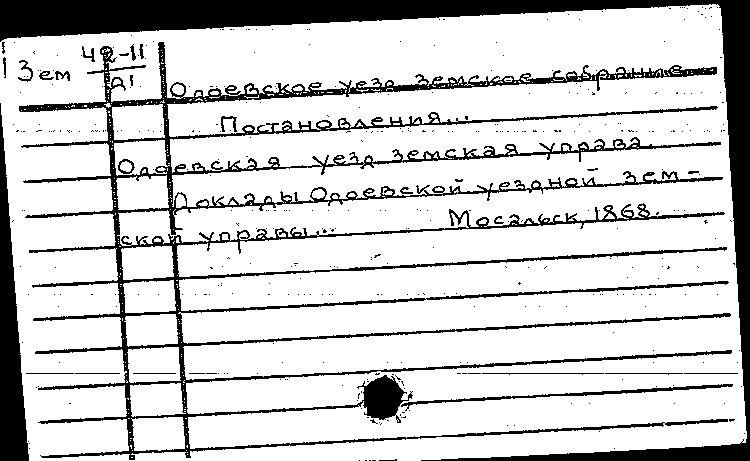 Зем 42-11
Д1
Одоевское уезд. земское собрание
Постановления...
Одоевская уезд. земская управа.
Доклады Одоевской уездной зем-
ской управы... Мосальск, 1868.